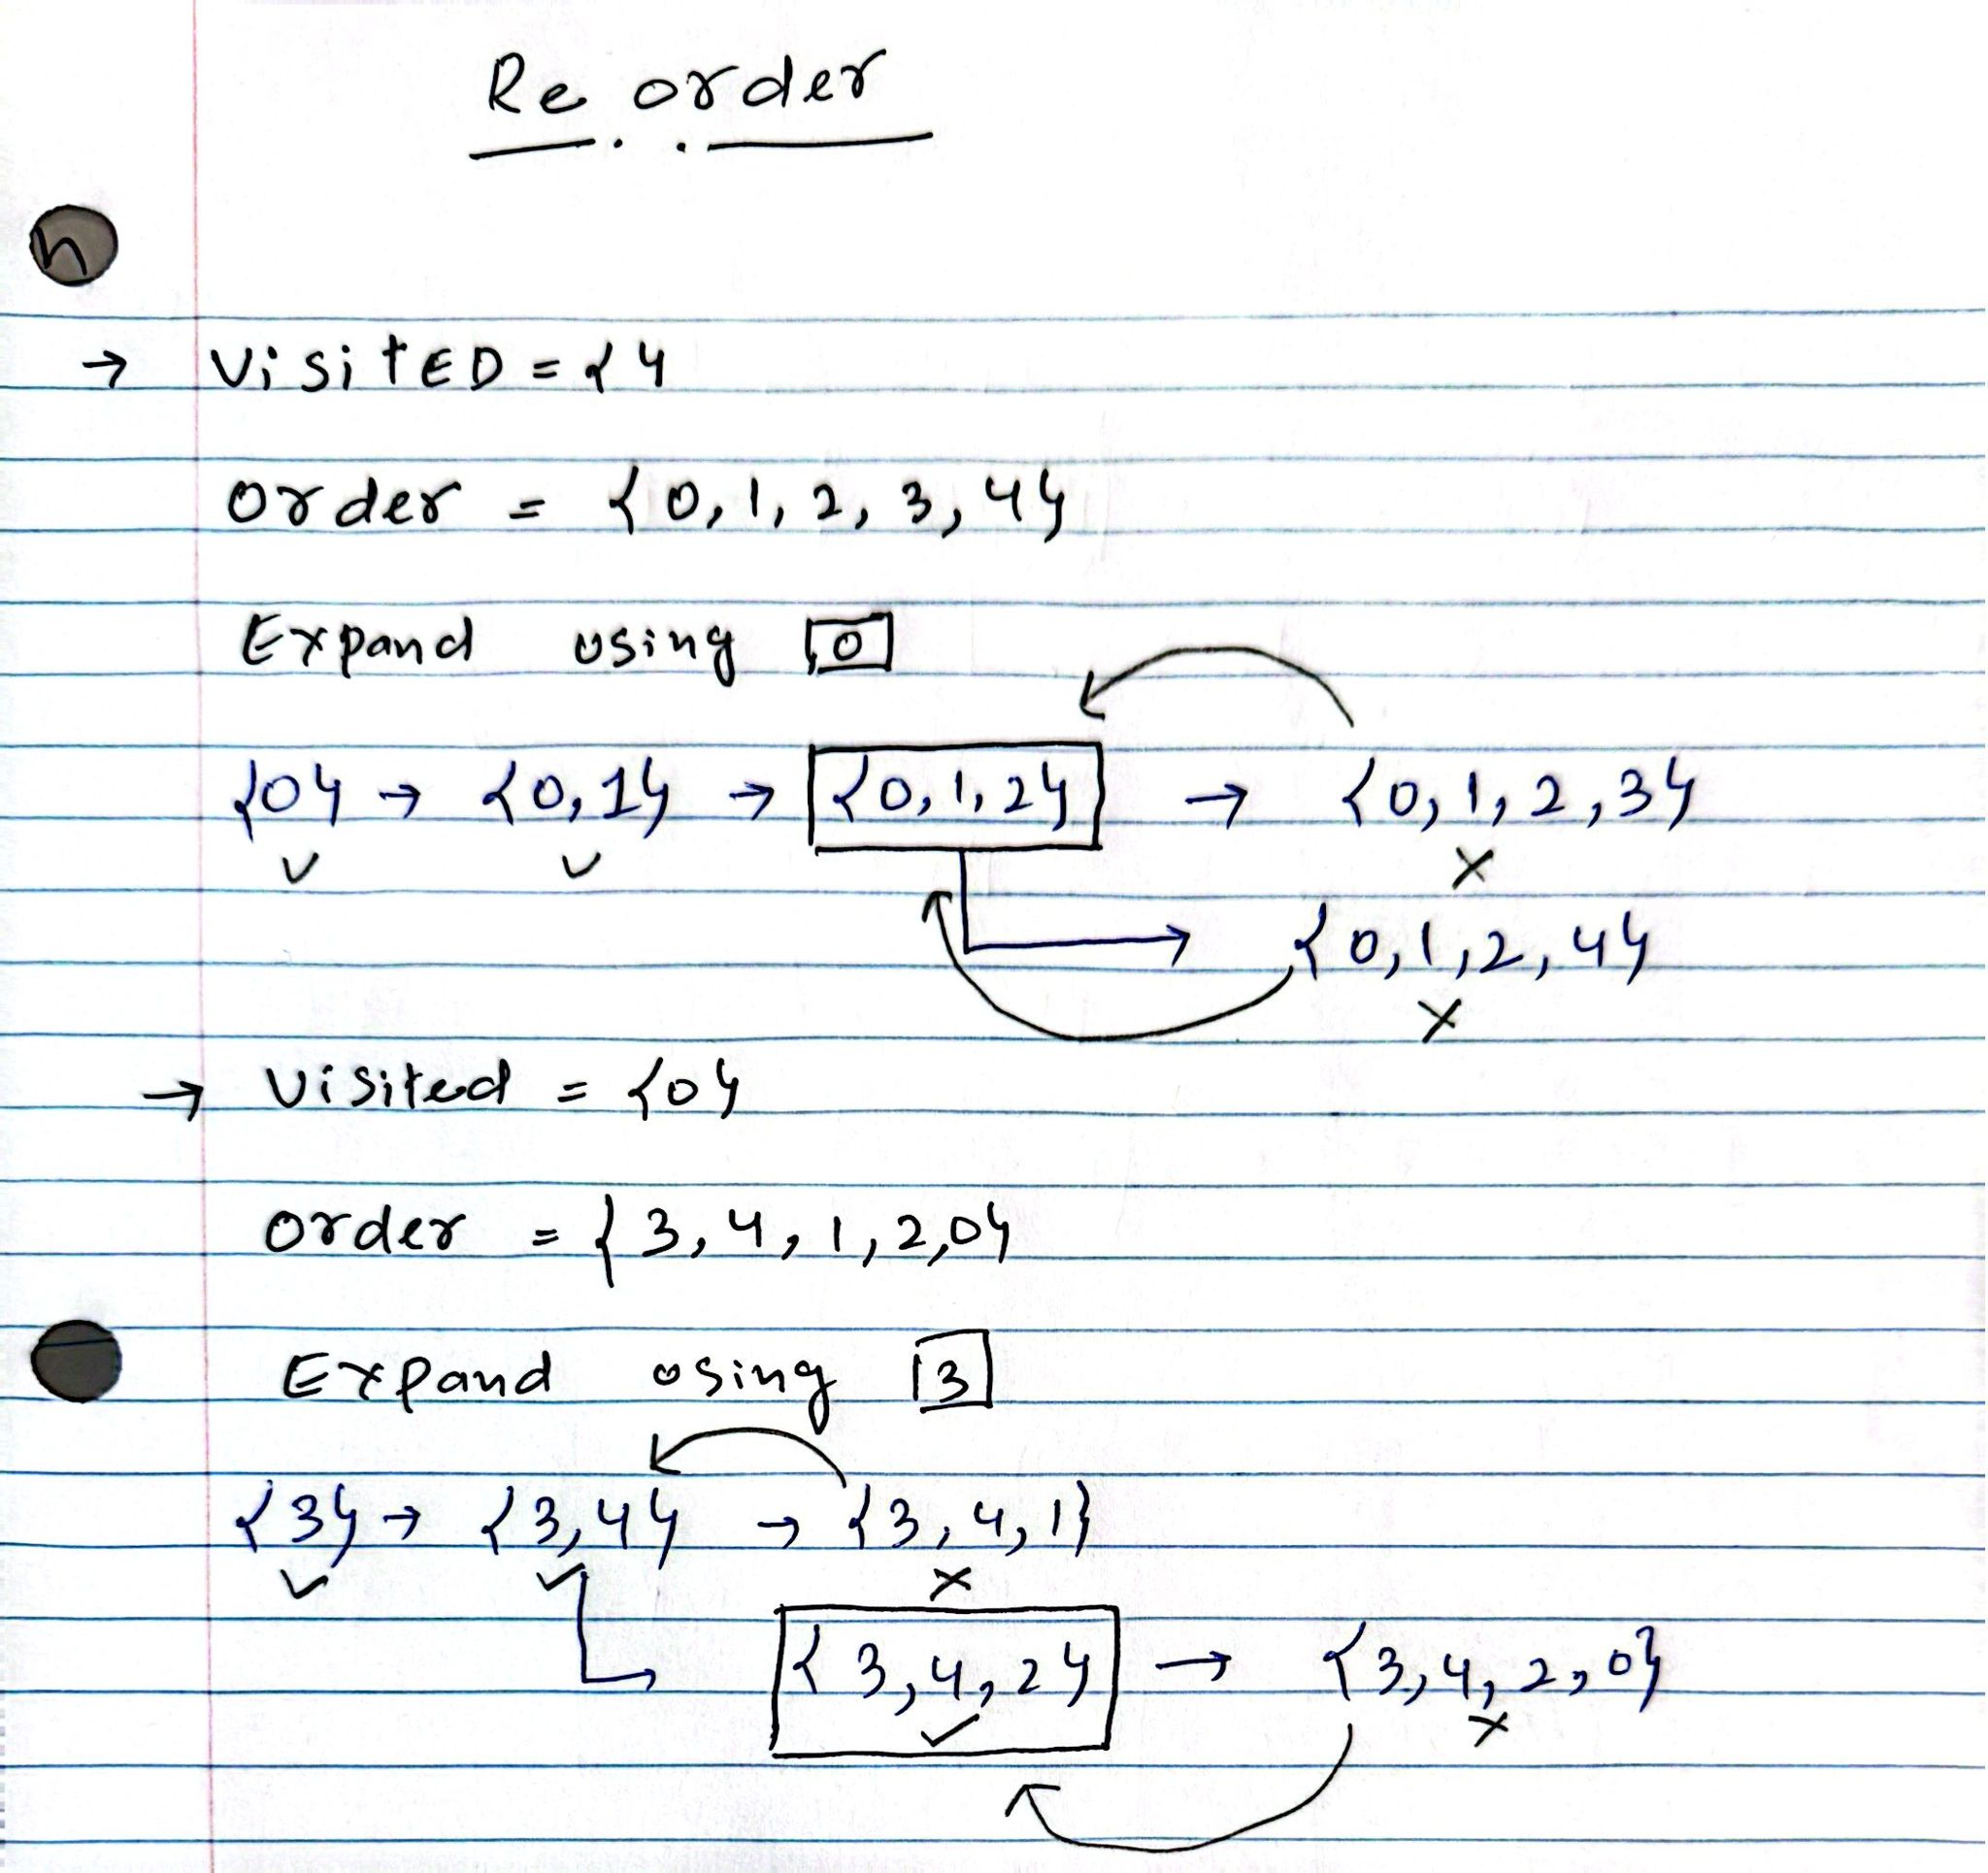 Re order
→ VisitED = {}
order = {0, 1, 2, 3, 4}
Expand using 0
{0} → {0, 1} → {0, 1, 2} → {0, 1, 2, 3}
✓ ✓ ×
→ {0, 1, 2, 4}
×
→ Visited = {0}
order = {3, 4, 1, 2, 0}
Expand using 3
{3} → {3, 4} → {3, 4, 1}
✓ ✓ ×
→ {3, 4, 2} → {3, 4, 2, 0}
✓ ×